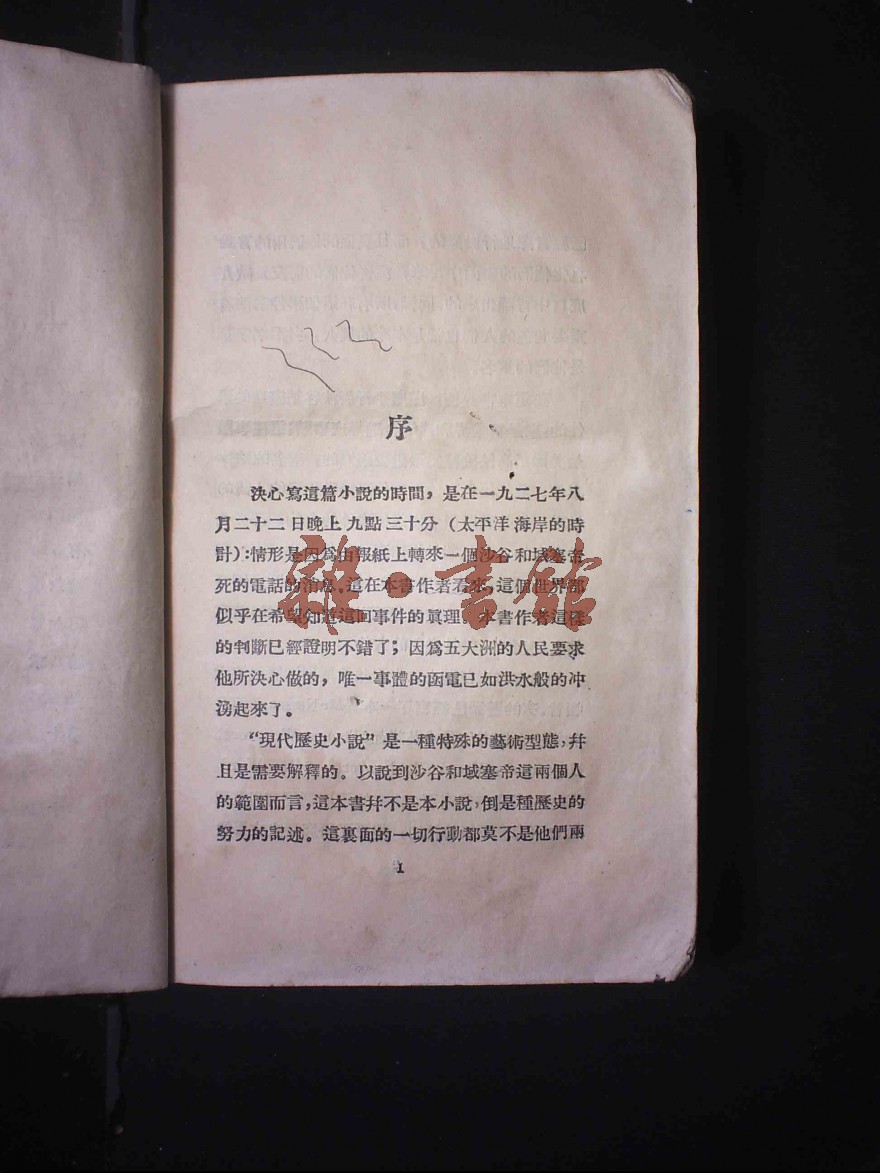 序
決心寫這篇小說的時間，是在一九二七年八
月二十二日晚上九點三十分（太平洋海岸的時
計）：情形是因爲由報紙上轉來一個沙谷和域塞帝
死的電話的消息。這在本書作者看來，這個世界都
似乎在希望知道這回事件的眞理。本書作者這樣
的判斷已經證明不錯了；因爲五大洲的人民要求
他所決心做的，唯一事體的函電已如洪水般的冲
湧起來了。
“現代歷史小說”是一種特殊的藝術型態，幷
且是需要解釋的。以說到沙谷和域塞帝這兩個人
的範圍而言，這本書幷不是本小說，倒是種歷史的
努力的記述。這裏面的一切行動都莫不是他們兩
1
雜·書館